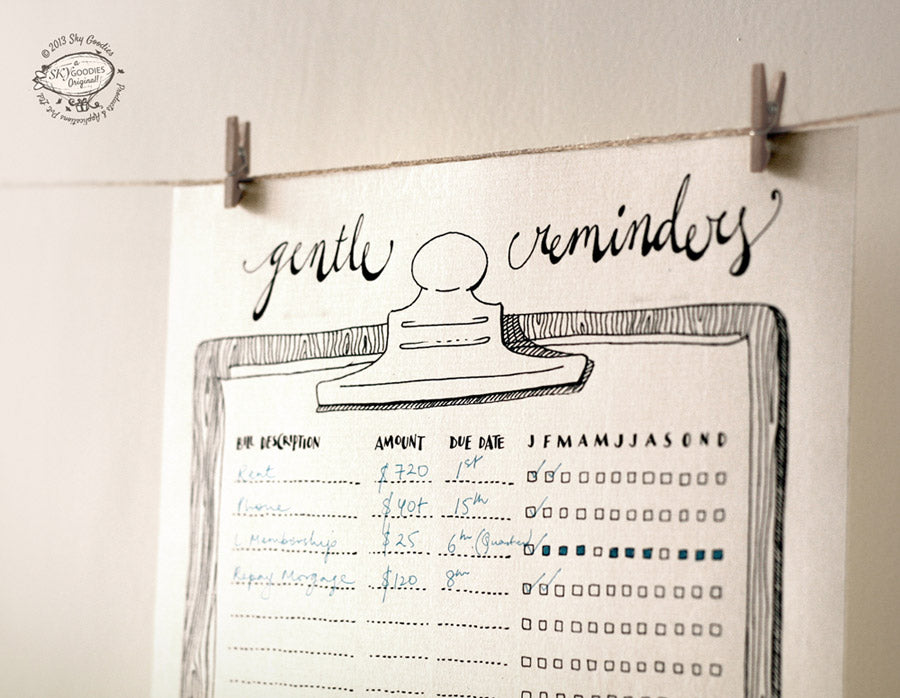 © 2013 Sky Goodies
a
SKYGOODIES
Original!
Products & Applications Pvt. Ltd.
gentle reminders
BILL DESCRIPTION AMOUNT DUE DATE J F M A M J J A S O N D
Rent $720 1st
Phone $40+ 15th
L Membership $25 6th (Quarter)
Repay Morgage $120 8th